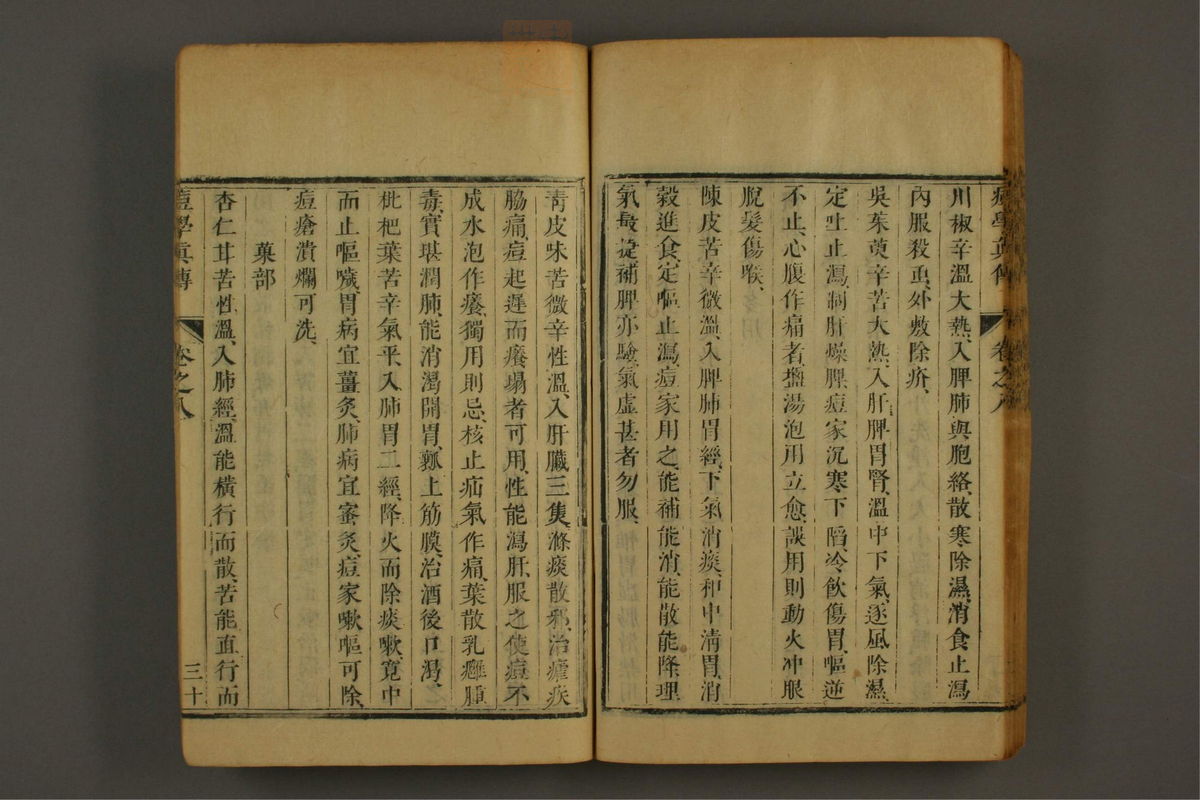 痘學眞傳 卷之八
川椒辛溫大熱、入脾肺與胞絡、散寒除濕、消食止瀉
內服殺虫、外敷除疥、
吳茱萸辛苦大熱、入肝脾胃腎、溫中下氣、逐風除濕、
定吐止瀉、制肝燥脾、痘家沉寒下陷、冷飲傷胃、嘔逆
不止、心腹作痛者、鹽湯泡用立愈、誤用則動火冲眼
脫髮傷喉、
陳皮苦辛微溫、入脾肺胃經、下氣消痰、和中淸胃、消
穀進食、定嘔止瀉、痘家用之、能補能消、能散能降、理
氣最㨗、補脾亦驗、氣虛甚者勿服、
靑皮味苦微辛性溫、入肝臟三隻、滌痰散邪、治瘧疾
脇痛、痘起遲而癢塌者可用、性能瀉肝、服之使痘不
成水泡作癢、獨用則忌、核止疝氣作痛、葉散乳癰腫
毒、實堪潤肺、能消渴開胃、瓤上筋膜、治酒後口渴、
枇杷葉苦辛氣平、入肺胃二經、降火而除痰嗽、寬中
而止嘔噦、胃病宜薑炙、肺病宜蜜炙、痘家嗽嘔可除、
痘瘡潰爛可洗、
菓部
杏仁甘苦性溫、入肺經、溫能橫行而散、苦能直行而
痘學眞傳 卷之八 三十